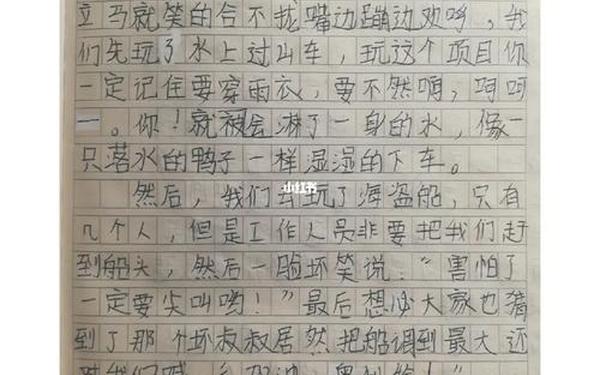 立马就笑的合不拢嘴边蹦边欢呼，我
们先玩了水上过山车，玩这个项目你
一定记住要穿雨衣，要不然嘛，呵呵
一。你！就被会淋了一身的水，像一
只落水的鸭子一样湿湿的下车。
然后，我们去玩了海盗船，只有
小红书
几个人，但是工作人员非要把我们赶
到船头，然后一脸坏笑说：“害怕了
一定要尖叫哟！”最后想必大家也猜
到了那个坏叔叔居然把船调到最大还
对我们喊